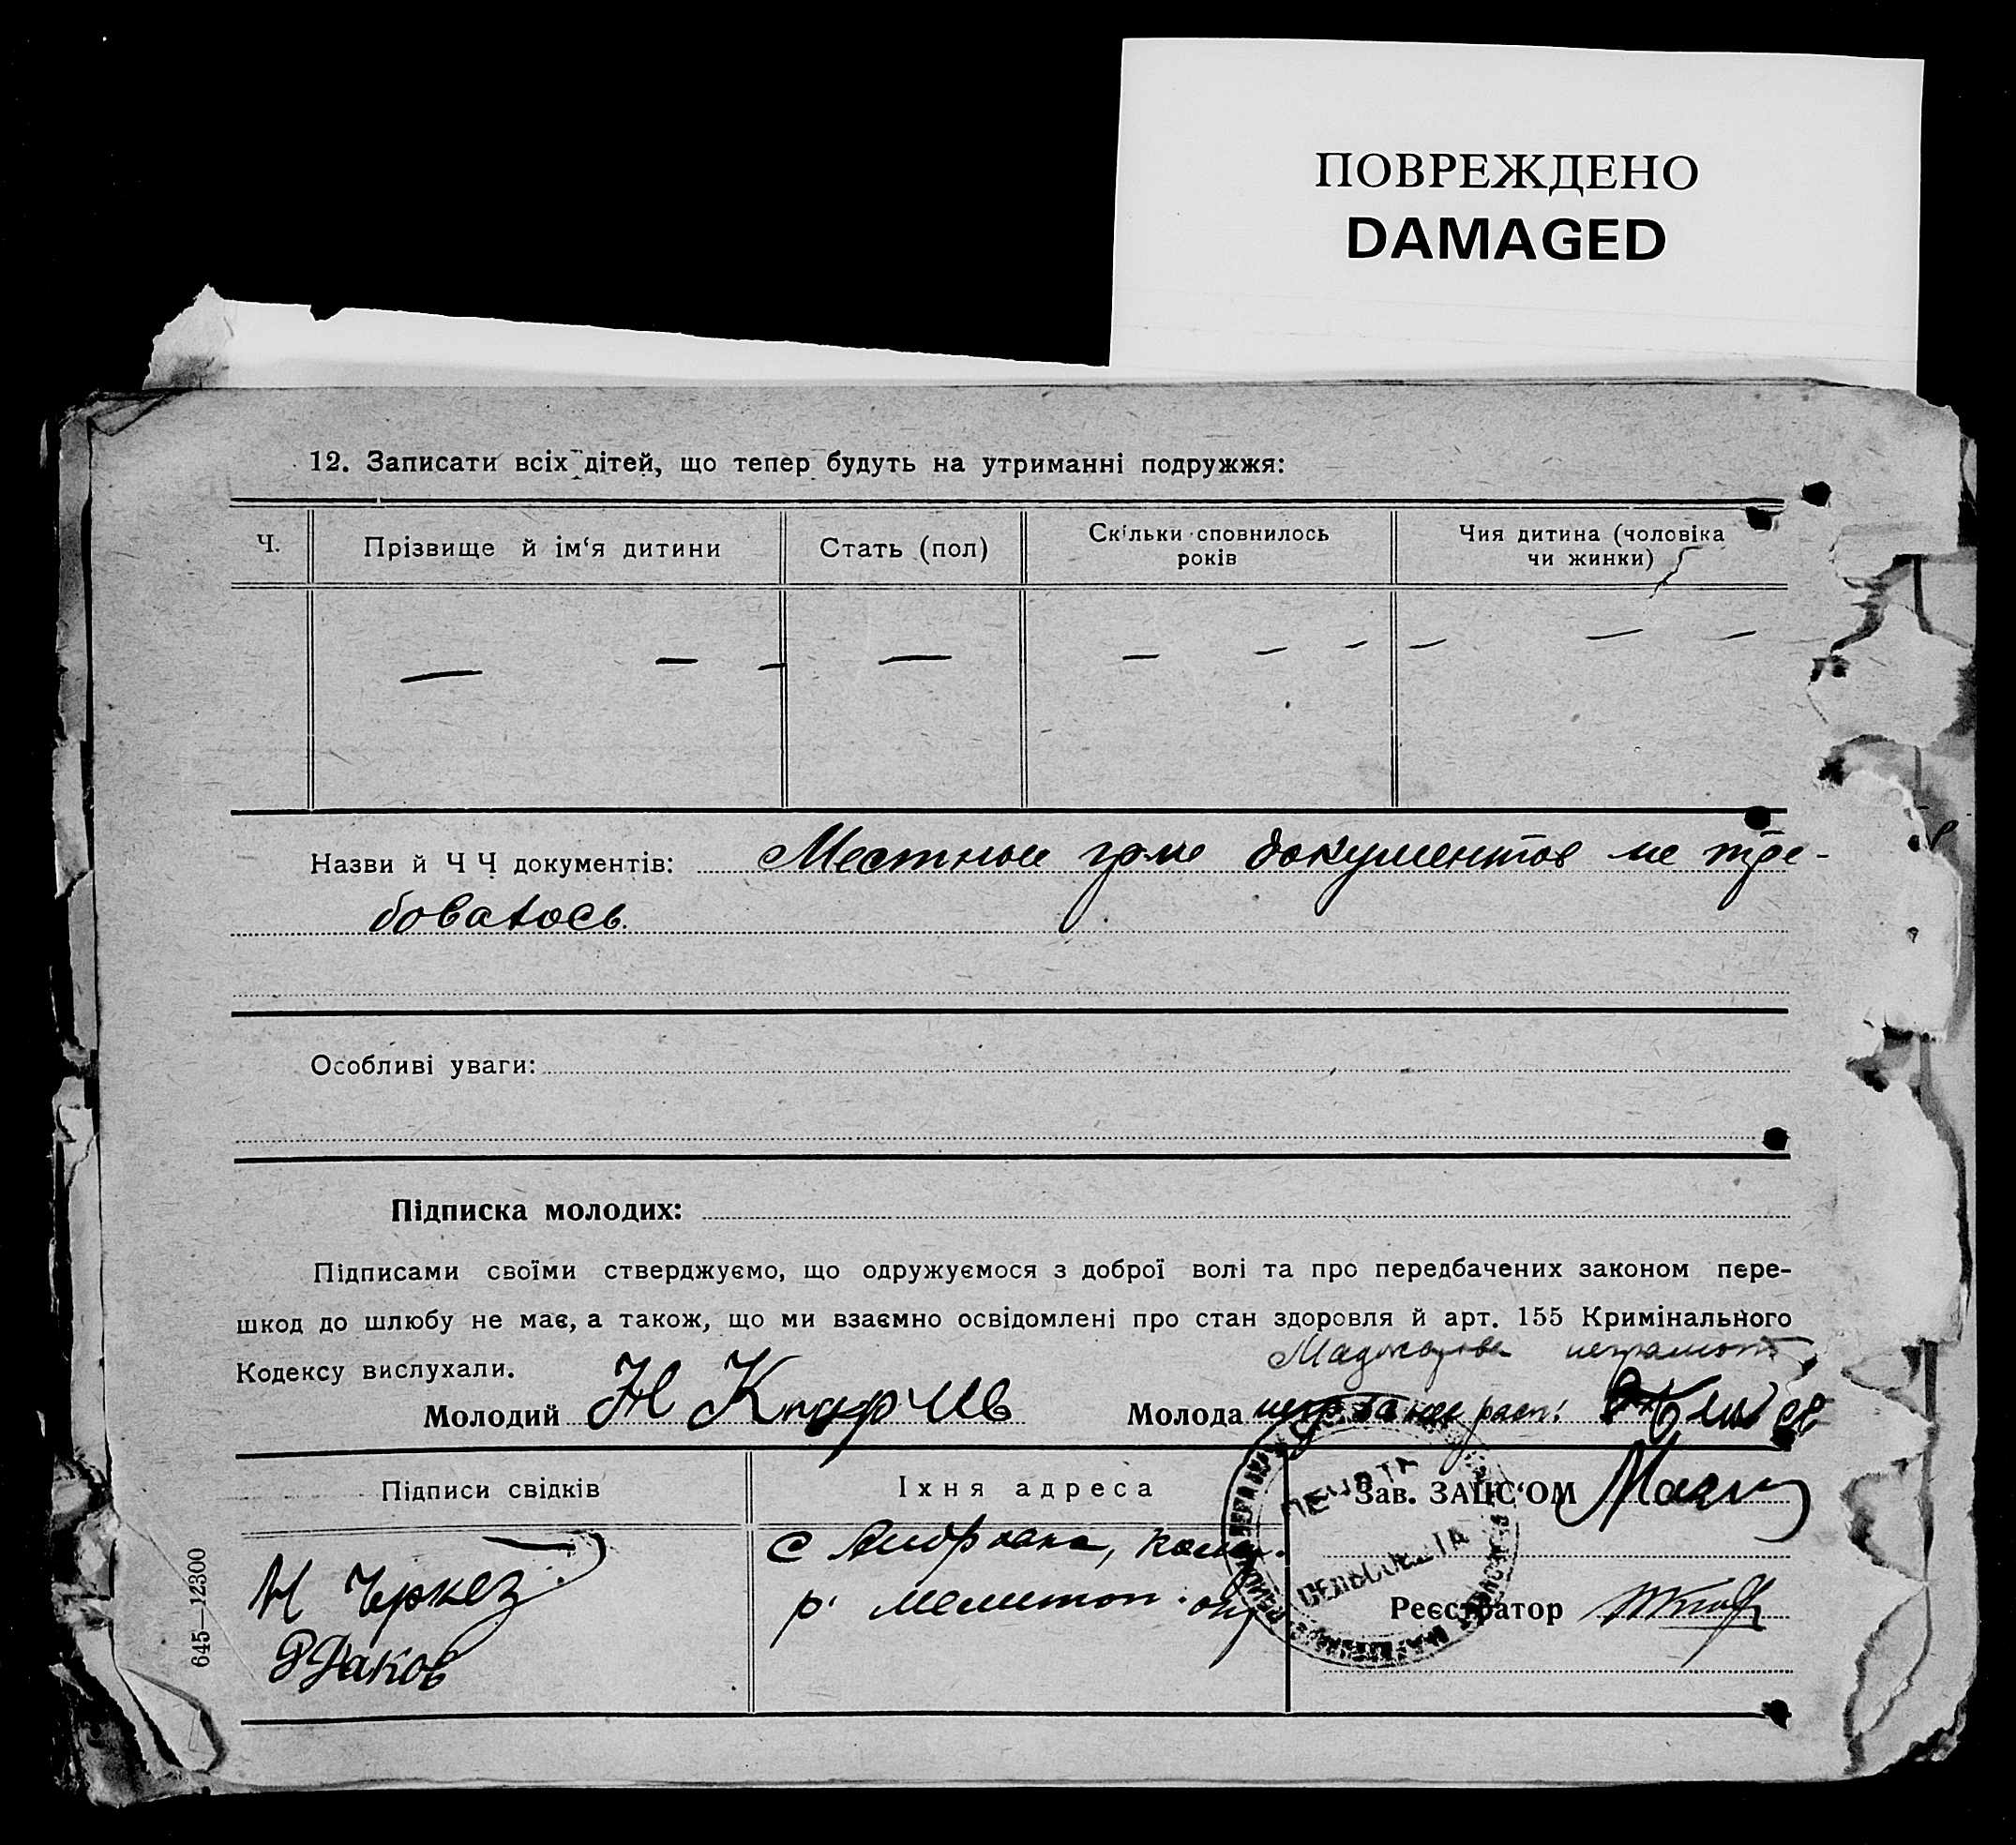 ПОВРЕЖДЕНО
DAMAGED
12. Записати всіх дітей, що тепер будуть на утриманні подружжя:
Ч.
Прізвище й ім‘я дитини
Стать (пол)
Скільки сповнилось
років
Чия дитина (чоловіка
чи жинки)
— — — — — — - - — -
Назви й Ч Ч документів: Местные гр-не документов не тре-
бовалось.
Особливі уваги:
Підписка молодих:
Підписами своїми стверджуємо, що одружуємося з доброї волі та про передбачених законом пере-
шкод до шлюбу не має, а також, що ми взаємно освідомлені про стан здоровля й арт. 155 Кримінального
Кодексу вислухали.
неграмотн
Молодий Н
Молода расп.
Підписи свідків
Їхня адреса
Зав. ЗАЦС‘ОМ
Н Черкез
с Андровка, коми.
р. мелитоп. окр
СЕЛЬСОВЕТА
Реєстратор
645—12300